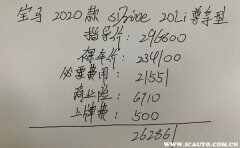 宝马2020款 sDrive 20Li 尊享型
指导价: 296600
裸车价: 234100
必要费用: 21551
商业险: 6710
上牌费: 500
262861
WWW.5CAUTO.COM.CN